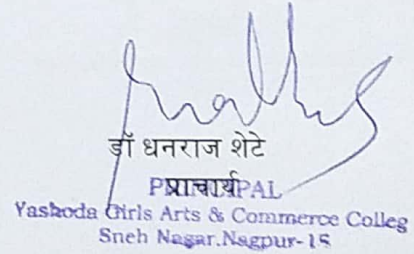 डॉ धनराज शेटे
प्राचार्य
PRINCIPAL
Yashoda Girls Arts & Commerce Colleg
Sneh Nagar.Nagpur-15